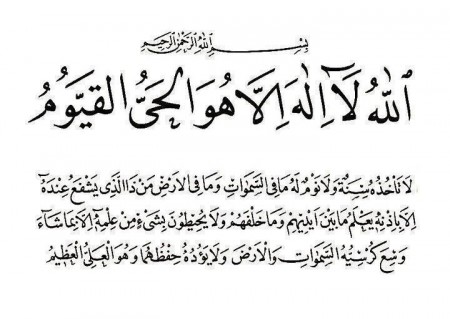 بِسْمِ اللهِ الرَّحْمٰنِ الرَّحِيمِ
اَللهُ لَآ اِلٰهَ اِلَّا هُوَ الْحَيُّ الْقَيُّومُ
لَا تَأْخُذُهُ سِنَةٌ وَلَا نَوْمٌ لَهُ مَا فِي السَّمٰوَاتِ وَمَا فِي الْاَرْضِ مَنْ ذَا الَّذِي يَشْفَعُ عِنْدَهُ
اِلَّا بِاِذْنِهِ يَعْلَمُ مَا بَيْنَ اَيْدِيهِمْ وَمَا خَلْفَهُمْ وَلَا يُحِيطُونَ بِشَيْءٍ مِنْ عِلْمِهِ اِلَّا بِمَا شَاءَ
وَسِعَ كُرْسِيُّهُ السَّمٰوَاتِ وَالْاَرْضَ وَلَا يَؤُدُهُ حِفْظُهُمَا وَهُوَ الْعَلِيُّ الْعَظِيمُ